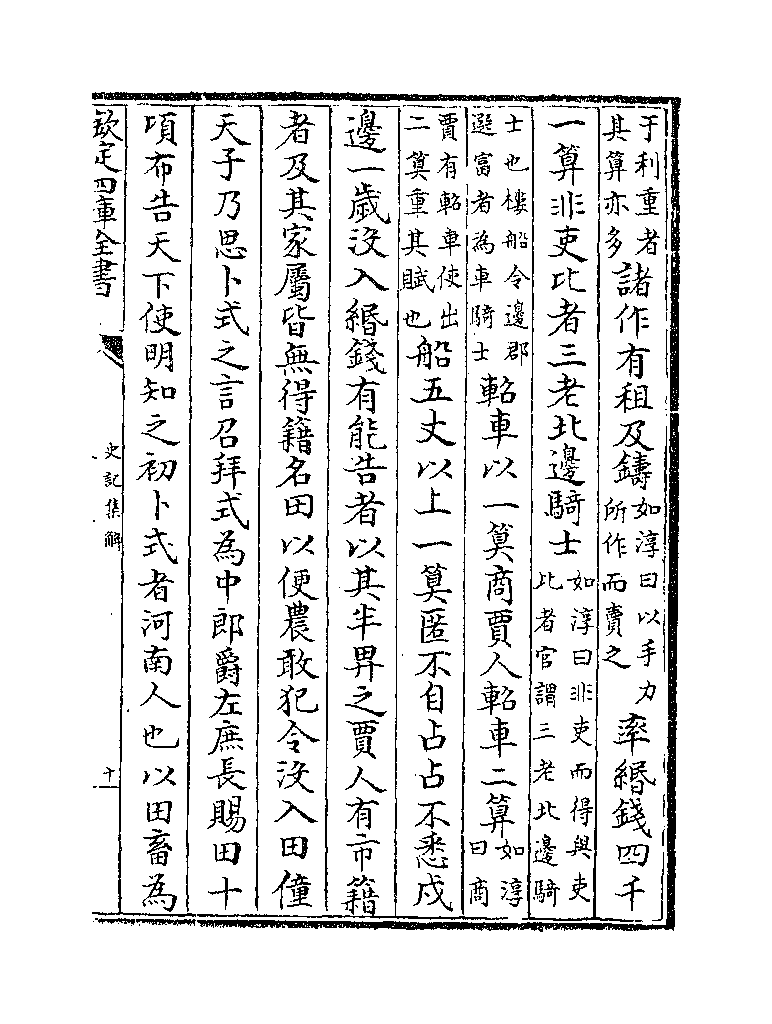 于利重者其算亦多諸作有租及鑄如淳曰以手力所作而賣之率緡錢四千
一算非吏比者三老北邊騎士如淳曰非吏而得與吏比者官謂三老北邊騎
士也樓船令邊郡選富者為車騎士軺車以一算商賈人軺車二算如淳曰商
賈有軺車使出二算重其賦也船五丈以上一算匿不自占占不悉戍
邊一歲沒入緡錢有能告者以其半畀之賈人有市籍
者及其家屬皆無得籍名田以便農敢犯令沒入田僮
天子乃思卜式之言召拜式為中郎爵左庶長賜田十
頃布告天下使明知之初卜式者河南人也以田畜為
欽定四庫全書
史記集解
十一